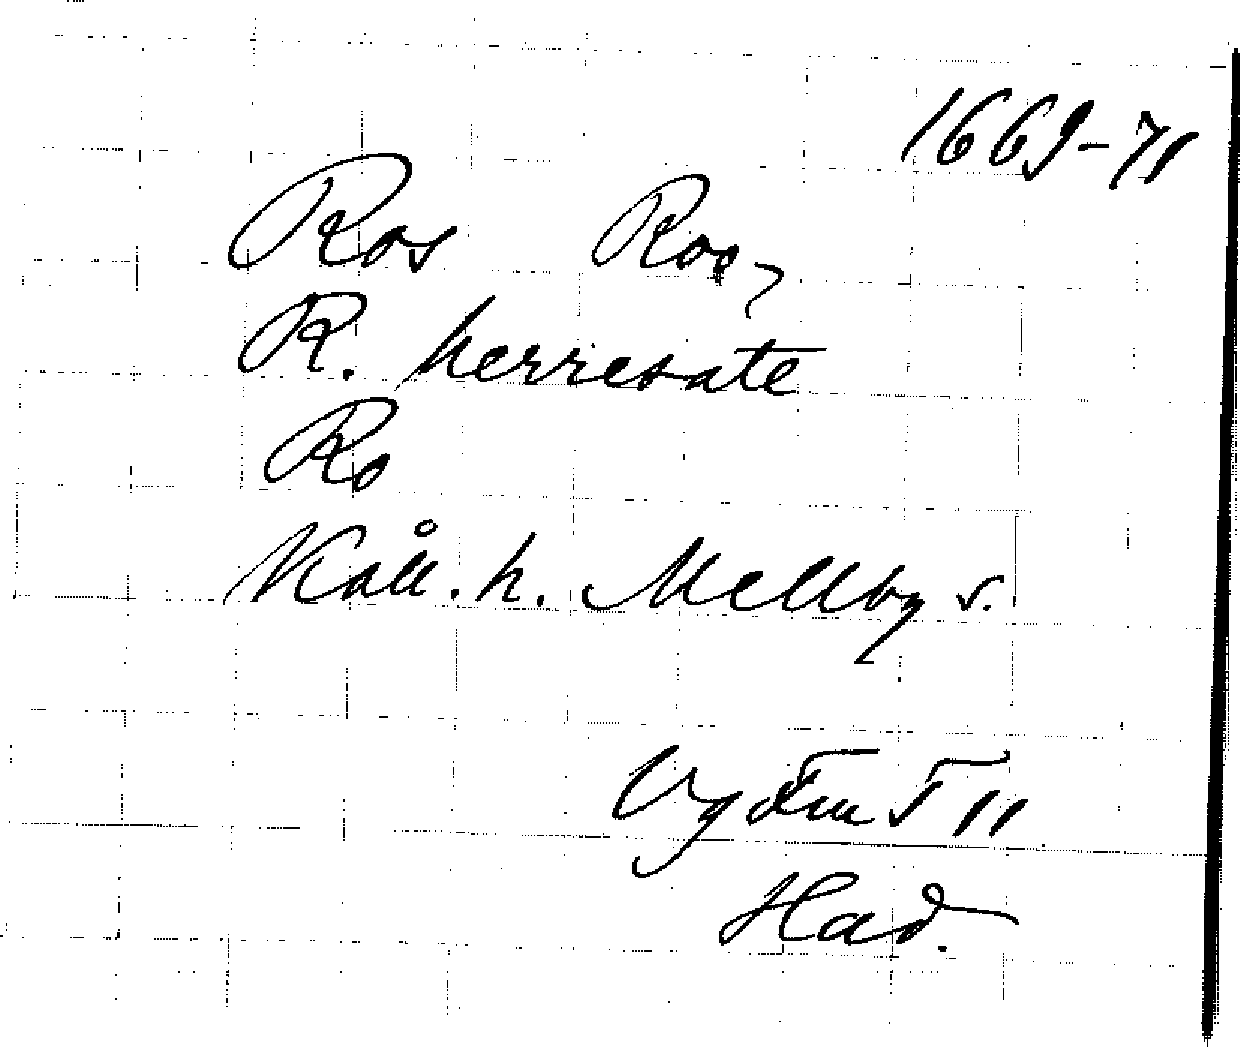 1669-71
Ros Roo,
R. herresäte
Ro
Kåll. h. Mellby s.
Vg 11
Had.